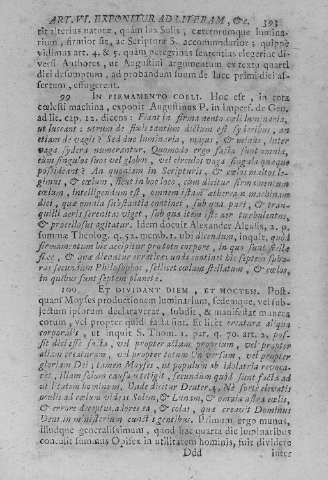 ART. VI. EXPONITUR AD LITERAM, &c. 393
sit alterius naturæ, quàm lux Solis, cæterorumque luminarium,
firmior sit, ac Scripturæ S. accommodatior; quippè
vidimus art. 4. & 5. quàm peregrinas sententias elegerint diversi
Authores, ut Augustini argumentum ex textu quarti
diei desumptum, ad probandum suum de luce primi diei assertum,
effugerent.
99 IN FIRMAMENTO COELI. Hoc est, in tota
cœlesti machina, exponit Augustinus P. in imperf. de Gen.
ad lit. cap. 12. dicens: Fiant in firmamento cœli luminaria,
ut luceant: utrum de fixis tantùm dictum est syderibus, an
etiam de vagis? Sed duo luminaria, magnum, & minus, inter
vaga sydera numerantur. Quomodo ergo facta sunt omnia,
cùm singulos suos vel globum, vel circulos vaga singula quæque
possideant? An quoniam in Scripturis, & cœlos multos legimus,
& cœlum, sicut in hoc loco, cùm dicitur firmamentum
cœlum, intelligendum est, omnem istam ætheream machinam
dici, quæ omnia sustantia continet, sub qua puri, & tranquilli
aeris serenitas viget, sub qua item iste aer turbulentus,
& procellosus agitatur. Idem docuit Alexander Alensis, 2. p.
summæ Theolog. q. 52. memb. 2. ubi dicendum, inquit, quòd
firmamentum hic accipitur pro toto corpore, in quo sunt stellæ
fixæ, & quæ dicuntur erraticæ: unde continet hic septem
secundùm Philosophos, scilicet cœlum stellatum, & cœlos,
in quibus sunt septem planetæ.
100. ET DIVIDANT DIEM, ET NOCTEM. Postquam
Moyses productionem luminarium, sedemque, vel subjectum
ipsorum declaraverat, subdit, & manifestat munera
eorum, vel propter quid facta sunt. Et licet creatura aliqua
corporalis, ut inquit S. Thom. 1. par. q. 70. art. 2. possit
dici esse facta, vel propter actum proprium, vel propter
aliam creaturam, vel propter totum Universum, vel propter
gloriam Dei; tamen Moyses, ut populum ab idolatria revocaret,
illam solam causam tetigit, secundùm quod sunt facta ad
utilitatem hominum. Unde dicitur Deuter. 4. Ne fortè elevatis
oculis ad cœlum videas Solem, & Lunam, & omnia astra cœli,
& errore deceptus adores ea, & colas, quæ creavit Dominus
Deus in ministerium cunctis gentibus. Primum ergo munus,
illudque generalissimum, quod hac quarta die luminaribus
contulit summus Opifex in utilitatem hominis, fuit dividere
Ddd inter